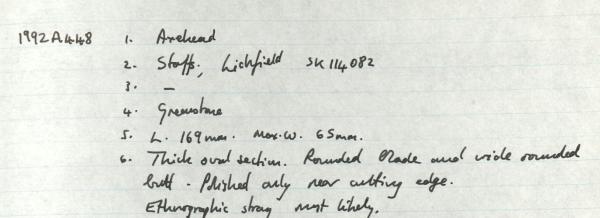 1992A448 1. Axehead
2. Staffs, Lichfield SK 114082
3. –
4. Greenstone
5. L. 169mm. Max.W. 65mm.
6. Thick oval section. Rounded blade and wide rounded
butt. Polished only near cutting edge.
Ethnographic stray most likely.